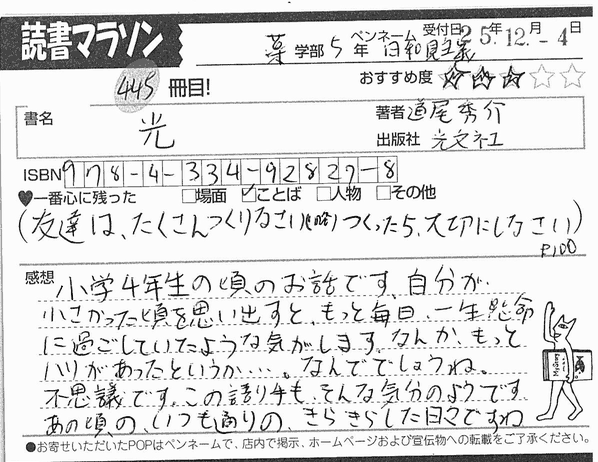 読書マラソン
薬 学部 5 年 ペンネーム 日和見主義 受付日 25年12月-4日
445 冊目!
おすすめ度 ★★★☆☆
書名 光
著者 道尾秀介
出版社 光文社
ISBN 978-4-334-92827-8
♥一番心に残った □場面 ☑ことば □人物 □その他
(友達は、たくさんつくりなさい(略)つくったら、大切にしなさい)
P100
感想
小学4年生の頃のお話です。自分が
小さかった頃を思い出すと、もっと毎日、一生懸命
に過ごしていたような気がします。なんか、もっと
ハリがあったというか…。なんででしょうね。
不思議です。この語り手も、そんな気分のようです。
あの頃の、いつも通りの、きらきらした日々ですね
●お寄せいただいたPOPはペンネームで、店内で掲示、ホームページおよび宣伝物への転載をご了承ください。